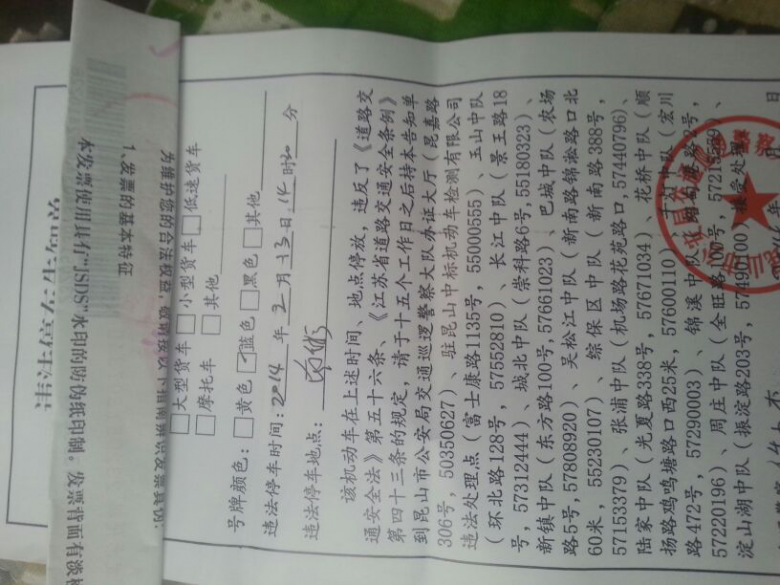 违法停车告知单
为维护您的合法权益,
1、发票的基本特征
本发票使用具有"JSDS"水印的防伪纸印制;发票背面有
大型货车 小型货车 低速货车
摩托车 其他
号牌颜色: 黄色 蓝色 黑色 其他
违法停车时间:2014年2月13日14时30分
违法停车地点:
该机动车在上述时间、地点停放,违反了《道路交
通安全法》第五十六条、《江苏省道路交通安全条例》
第四十三条的规定,请于十五个工作日之后持本告知单
到昆山市公安局交通巡逻警察大队办证大厅(昆嘉路
306号,50350627)、驻昆山中标机动车检测有限公司
违法处理点(富士康路1135号,55000555)、玉山中队
(环北路128号,57552810)、长江中队(景王路18
号,57312444)、城北中队(崇科路6号,55180323)、
新镇中队(东方路100号,57661023)、巴城中队(农场
路5号,57808920)、吴松江中队(新南路锦淞路口北
60米,55230107)、综保区中队(新南路388号,
57153379)、张浦中队(机场路花苑路口,57440796)、
陆家中队(光夏路338号,57671034)、花桥中队(顺
扬路鸡鸣塘路口西25米,57600110)、中队(宏川
路472号,57290003)、锦溪中队(号,
57220196)、周庄中队(全旺路100号,572)、
淀山湖中队(振淀路203号,57490100)接受处理
年 月 日